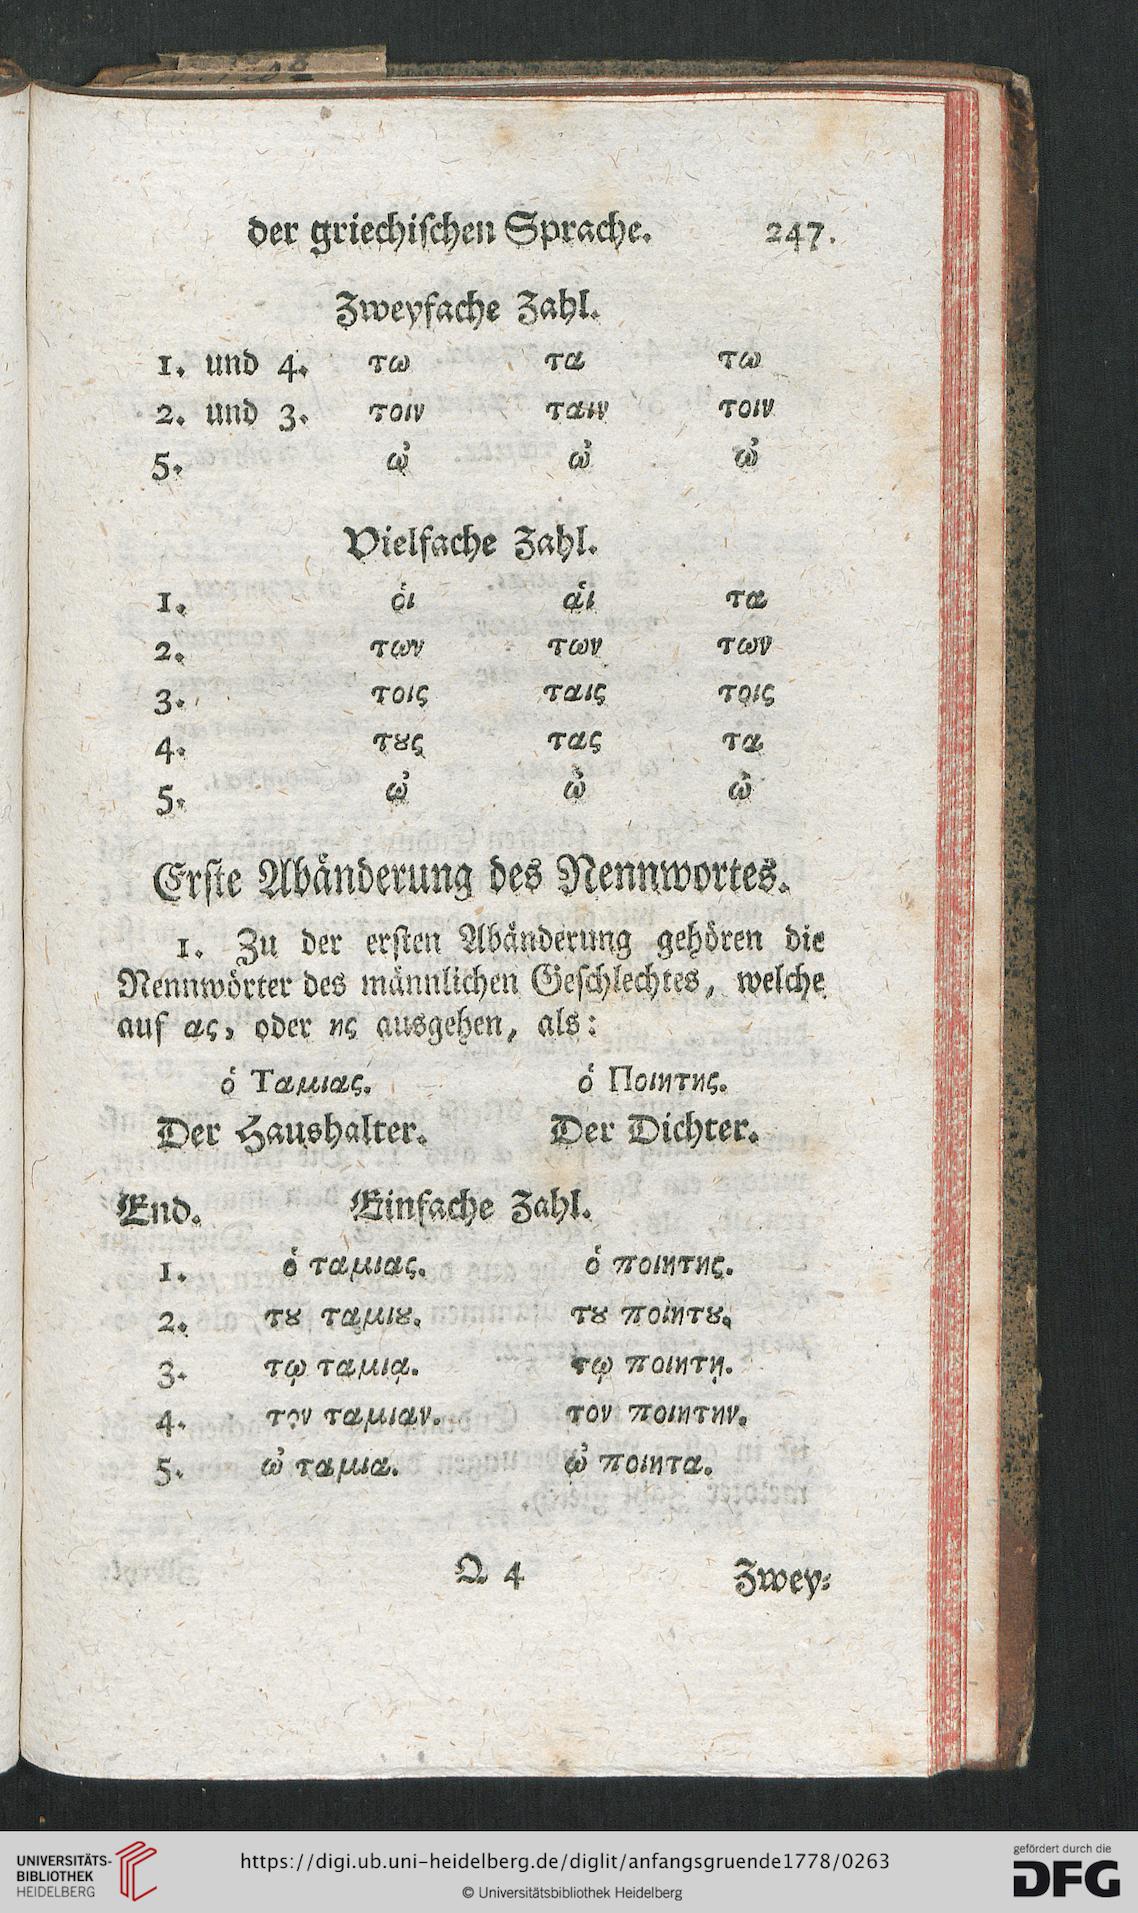 der griechischen Sprache. 247.
Zweyfache Zahl.
1. und 4. τω τα τω
2. und 3. τοιν ταιν τοιν
5. ὠ ὠ ὠ
Vielfache Zahl.
1. ὁι ἁι τα
2. των των των
3. τοις ταις τοις
4. τȣς τας τα
5. ὠ ὠ ὠ
Erste Abänderung des Nennwortes.
1. Zu der ersten Abänderung gehören die
Nennwörter des männlichen Geschlechtes, welche
auf ας, oder ης ausgehen, als:
ὁ Ταμιας. ὁ Ποιητης.
Der Haushalter. Der Dichter.
End. Einfache Zahl.
1. ὁ ταμιας. ὁ ποιητης.
2. τȣ ταμιȣ. τȣ ποιητȣ.
3. τῳ ταμιᾳ. τῳ ποιητῃ.
4. τον ταμιαν. τον ποιητην.
5. ὠ ταμια. ὠ ποιητα.
Q 4 Zwey-
UNIVERSITÄTS-
BIBLIOTHEK
HEIDELBERG
https://digi.ub.uni-heidelberg.de/diglit/anfangsgruende1778/0263
© Universitätsbibliothek Heidelberg
gefördert durch die
DFG